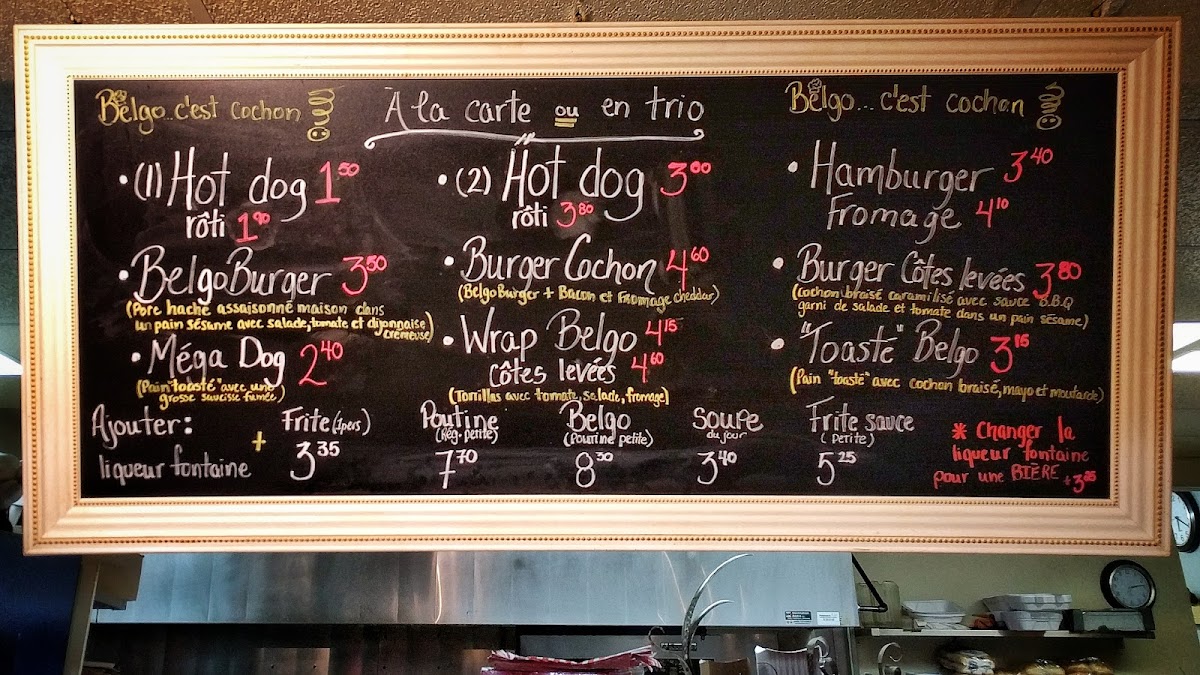 Belgo...c'est cochon
À la carte ou en trio
Belgo...c'est cochon
• (1) Hot dog 1.50
rôti 1.90
• (2) Hot dog 3.00
rôti 3.80
• Hamburger 3.40
Fromage 4.10
• BelgoBurger 3.50
(Porc haché assaisonné maison dans
un pain sésame avec salade, tomate et dijonnaise
crémeuse)
• Burger Cochon 4.60
(BelgoBurger + Bacon et fromage cheddar)
• Burger Côtes levées 3.80
(cochon braisé caramélisé avec sauce B.B.Q
garni de salade et tomate dans un pain sésame)
• Méga Dog 2.40
(Pain "toasté" avec une
grosse saucisse fumée)
• Wrap Belgo 4.15
côtes levées 4.60
(Torrillas avec tomate, salade, fromage)
• "Toasté" Belgo 3.15
(Pain "toasté" avec cochon braisé, mayo et moutarde)
Ajouter:
liqueur fontaine
+
Frite (1 pers)
3.35
Poutine
(Rég. petite)
7.70
Belgo
(Poutine petite)
8.30
Soupe
du jour
3.40
Frite sauce
(Petite)
5.25
* Changer la
liqueur fontaine
pour une BIÈRE +